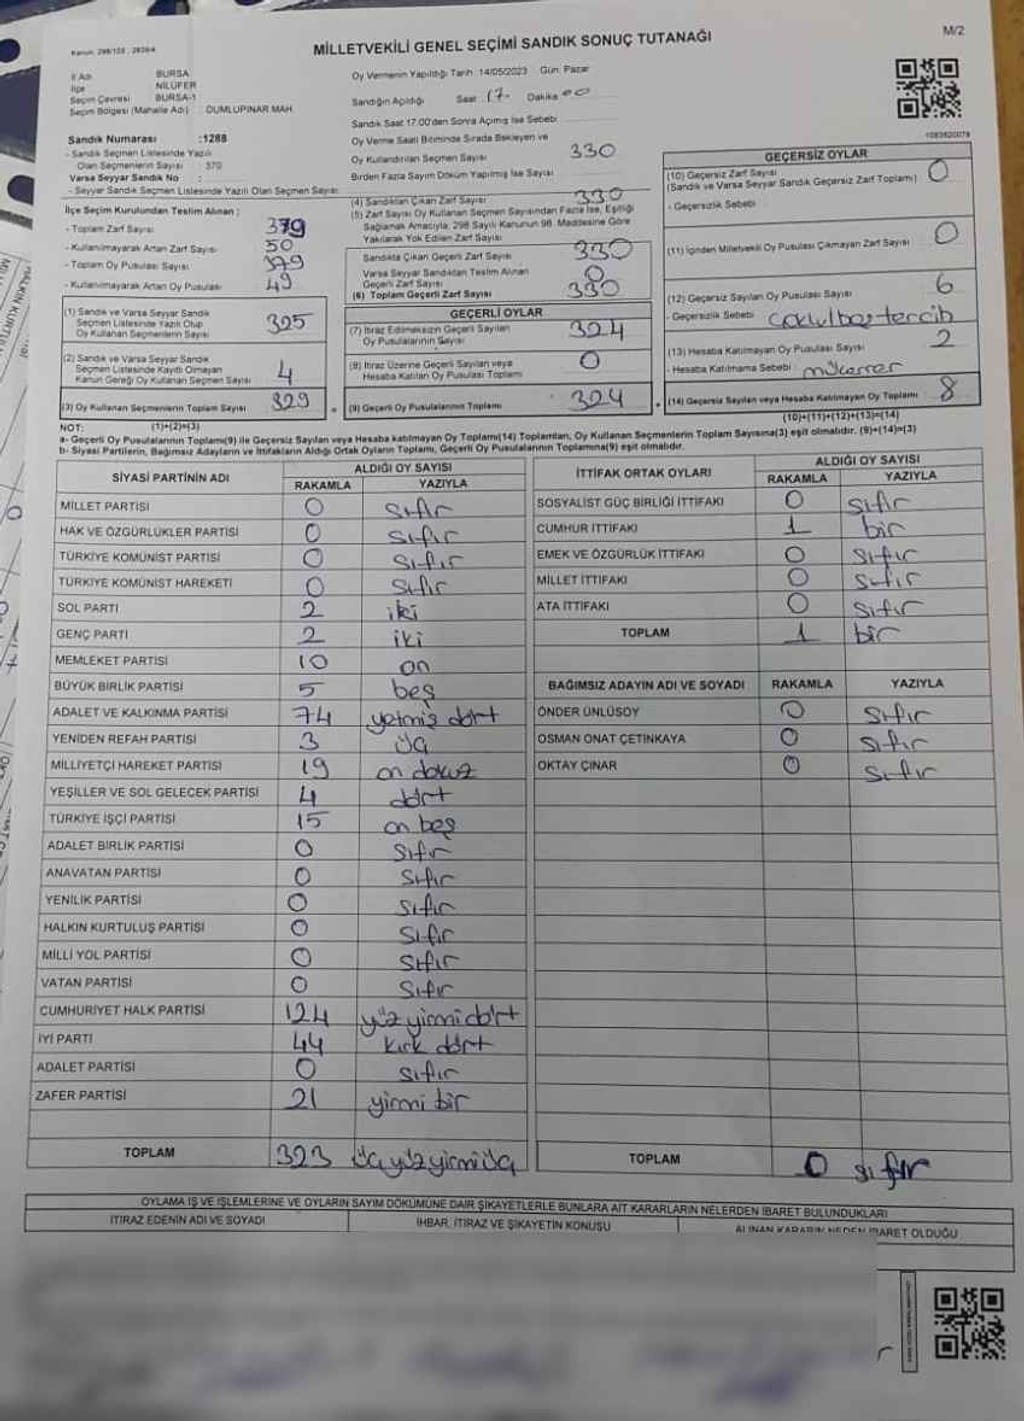 Kanun: 298/105 , 2839/4
MİLLETVEKİLİ GENEL SEÇİMİ SANDIK SONUÇ TUTANAĞI
M/2
İl Adı BURSA
İlçe NİLÜFER
Seçim Çevresi BURSA-1
Seçim Bölgesi (Mahalle Adı) : DUMLUPINAR MAH.
Sandık Numarası :1288
- Sandık Seçmen Listesinde Yazılı
Olan Seçmenlerin Sayısı : 370
Varsa Seyyar Sandık No :
- Seyyar Sandık Seçmen Listesinde Yazılı Olan Seçmen Sayısı
Oy Vermenin Yapıldığı Tarih :14/05/2023 Gün: Pazar
Sandığın Açıldığı Saat 17. Dakika 00
Sandık Saat 17.00'den Sonra Açılmış İse Sebebi
Oy Verme Saati Bitiminde Sırada Bekleyen ve
Oy Kullandırılan Seçmen Sayısı 330
Birden Fazla Sayım Döküm Yapılmış İse Sayısı
İlçe Seçim Kurulundan Teslim Alınan ;
- Toplam Zarf Sayısı 379
- Kullanılmayarak Artan Zarf Sayısı 50
- Toplam Oy Pusulası Sayısı 379
- Kullanılmayarak Artan Oy Pusulası 49
(1) Sandık ve Varsa Seyyar Sandık
Seçmen Listesinde Yazılı Olup
Oy Kullanan Seçmenlerin Sayısı 325
(2) Sandık ve Varsa Seyyar Sandık
Seçmen Listesinde Kayıtlı Olmayan
Kanun Gereği Oy Kullanan Seçmen Sayısı 4
(3) Oy Kullanan Seçmenlerin Toplam Sayısı 329
(4) Sandıktan Çıkan Zarf Sayısı 330
(5) Zarf Sayısı Oy Kullanan Seçmen Sayısından Fazla İse, Eşitliği
Sağlamak Amacıyla, 298 Sayılı Kanunun 98. Maddesine Göre
Yakılarak Yok Edilen Zarf Sayısı
Sandıkta Çıkan Geçerli Zarf Sayısı 330
Varsa Seyyar Sandıktan Teslim Alınan
Geçerli Zarf Sayısı 0
(6) Toplam Geçerli Zarf Sayısı 330
GEÇERLİ OYLAR
(7) İtiraz Edilmeksizin Geçerli Sayılan
Oy Pusulalarının Sayısı 324
(8) İtiraz Üzerine Geçerli Sayılan veya
Hesaba Katılan Oy Pusulası Toplamı 0
(9) Geçerli Oy Pusulalarının Toplamı 324
1083620079
GEÇERSİZ OYLAR
(10) Geçersiz Zarf Sayısı 0
(Sandık ve Varsa Seyyar Sandık Geçersiz Zarf Toplamı)
- Geçersizlik Sebebi
(11) İçinden Milletvekili Oy Pusulası Çıkmayan Zarf Sayısı 0
(12) Geçersiz Sayılan Oy Pusulası Sayısı 6
- Geçersizlik Sebebi : çoklu/boş tercih
(13) Hesaba Katılmayan Oy Pusulası Sayısı 2
- Hesaba Katılmama Sebebi : mükerrer
(14) Geçersiz Sayılan veya Hesaba Katılmayan Oy Toplamı 8
NOT: (1)+(2)=(3) (10)+(11)+(12)+(13)=(14)
a- Geçerli Oy Pusulalarının Toplamı(9) ile Geçersiz Sayılan veya Hesaba katılmayan Oy Toplamı(14) Toplamları, Oy Kullanan Seçmenlerin Toplam Sayısına(3) eşit olmalıdır. (9)+(14)=(3)
b- Siyasi Partilerin, Bağımsız Adayların ve İttifakların Aldığı Ortak Oyların Toplamı, Geçerli Oy Pusulalarının Toplamına(9) eşit olmalıdır.
SİYASİ PARTİNİN ADI ALDIĞI OY SAYISI
RAKAMLA YAZIYLA
MİLLET PARTİSİ 0 sıfır
HAK VE ÖZGÜRLÜKLER PARTİSİ 0 sıfır
TÜRKİYE KOMÜNİST PARTİSİ 0 sıfır
TÜRKİYE KOMÜNİST HAREKETİ 0 sıfır
SOL PARTİ 2 iki
GENÇ PARTİ 2 iki
MEMLEKET PARTİSİ 10 on
BÜYÜK BİRLİK PARTİSİ 5 beş
ADALET VE KALKINMA PARTİSİ 74 yetmiş dört
YENİDEN REFAH PARTİSİ 3 üç
MİLLİYETÇİ HAREKET PARTİSİ 19 on dokuz
YEŞİLLER VE SOL GELECEK PARTİSİ 4 dört
TÜRKİYE İŞÇİ PARTİSİ 15 on beş
ADALET BİRLİK PARTİSİ 0 sıfır
ANAVATAN PARTİSİ 0 sıfır
YENİLİK PARTİSİ 0 sıfır
HALKIN KURTULUŞ PARTİSİ 0 sıfır
MİLLİ YOL PARTİSİ 0 sıfır
VATAN PARTİSİ 0 sıfır
CUMHURİYET HALK PARTİSİ 124 yüz yirmi dört
İYİ PARTİ 44 kırk dört
ADALET PARTİSİ 0 sıfır
ZAFER PARTİSİ 21 yirmi bir
TOPLAM 323 üç yüz yirmi üç
İTTİFAK ORTAK OYLARI ALDIĞI OY SAYISI
RAKAMLA YAZIYLA
SOSYALİST GÜÇ BİRLİĞİ İTTİFAKI 0 sıfır
CUMHUR İTTİFAKI 1 bir
EMEK VE ÖZGÜRLÜK İTTİFAKI 0 sıfır
MİLLET İTTİFAKI 0 sıfır
ATA İTTİFAKI 0 sıfır
TOPLAM 1 bir
BAĞIMSIZ ADAYIN ADI VE SOYADI RAKAMLA YAZIYLA
ÖNDER ÜNLÜSOY 0 sıfır
OSMAN ONAT ÇETİNKAYA 0 sıfır
OKTAY ÇINAR 0 sıfır
TOPLAM 0 sıfır
OYLAMA İŞ VE İŞLEMLERİNE VE OYLARIN SAYIM DÖKÜMÜNE DAİR ŞİKAYETLERLE BUNLARA AİT KARARLARIN NELERDEN İBARET BULUNDUKLARI
İTİRAZ EDENİN ADI VE SOYADI İHBAR, İTİRAZ VE ŞİKAYETİN KONUSU ALINAN KARARIN NEDEN İBARET OLDUĞU